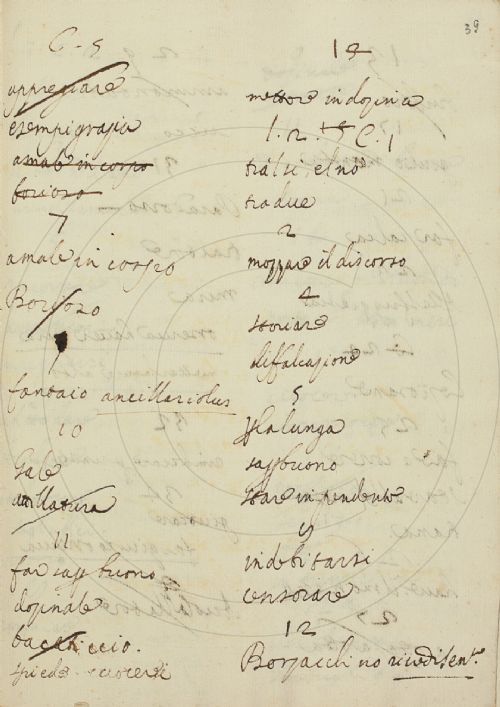 39
C. 5
appregiare
esempigrazia
amale in corpo
borioso
7
amale in corpo
Borioso
9
fantaio ancillariolus
10
Gale
attillatura
11
far sapp buono
dozinale
bacchiccio.
spiedo
13
mettere in dozina
l. 2. C. 1
tralsi, el no
tradue
2
mozzare il discorso
4
storiare
diffalcazione
5
Spalunga
sapp buono
stare in pendente
9
indebitarsi
censorare
12
Borzacchino